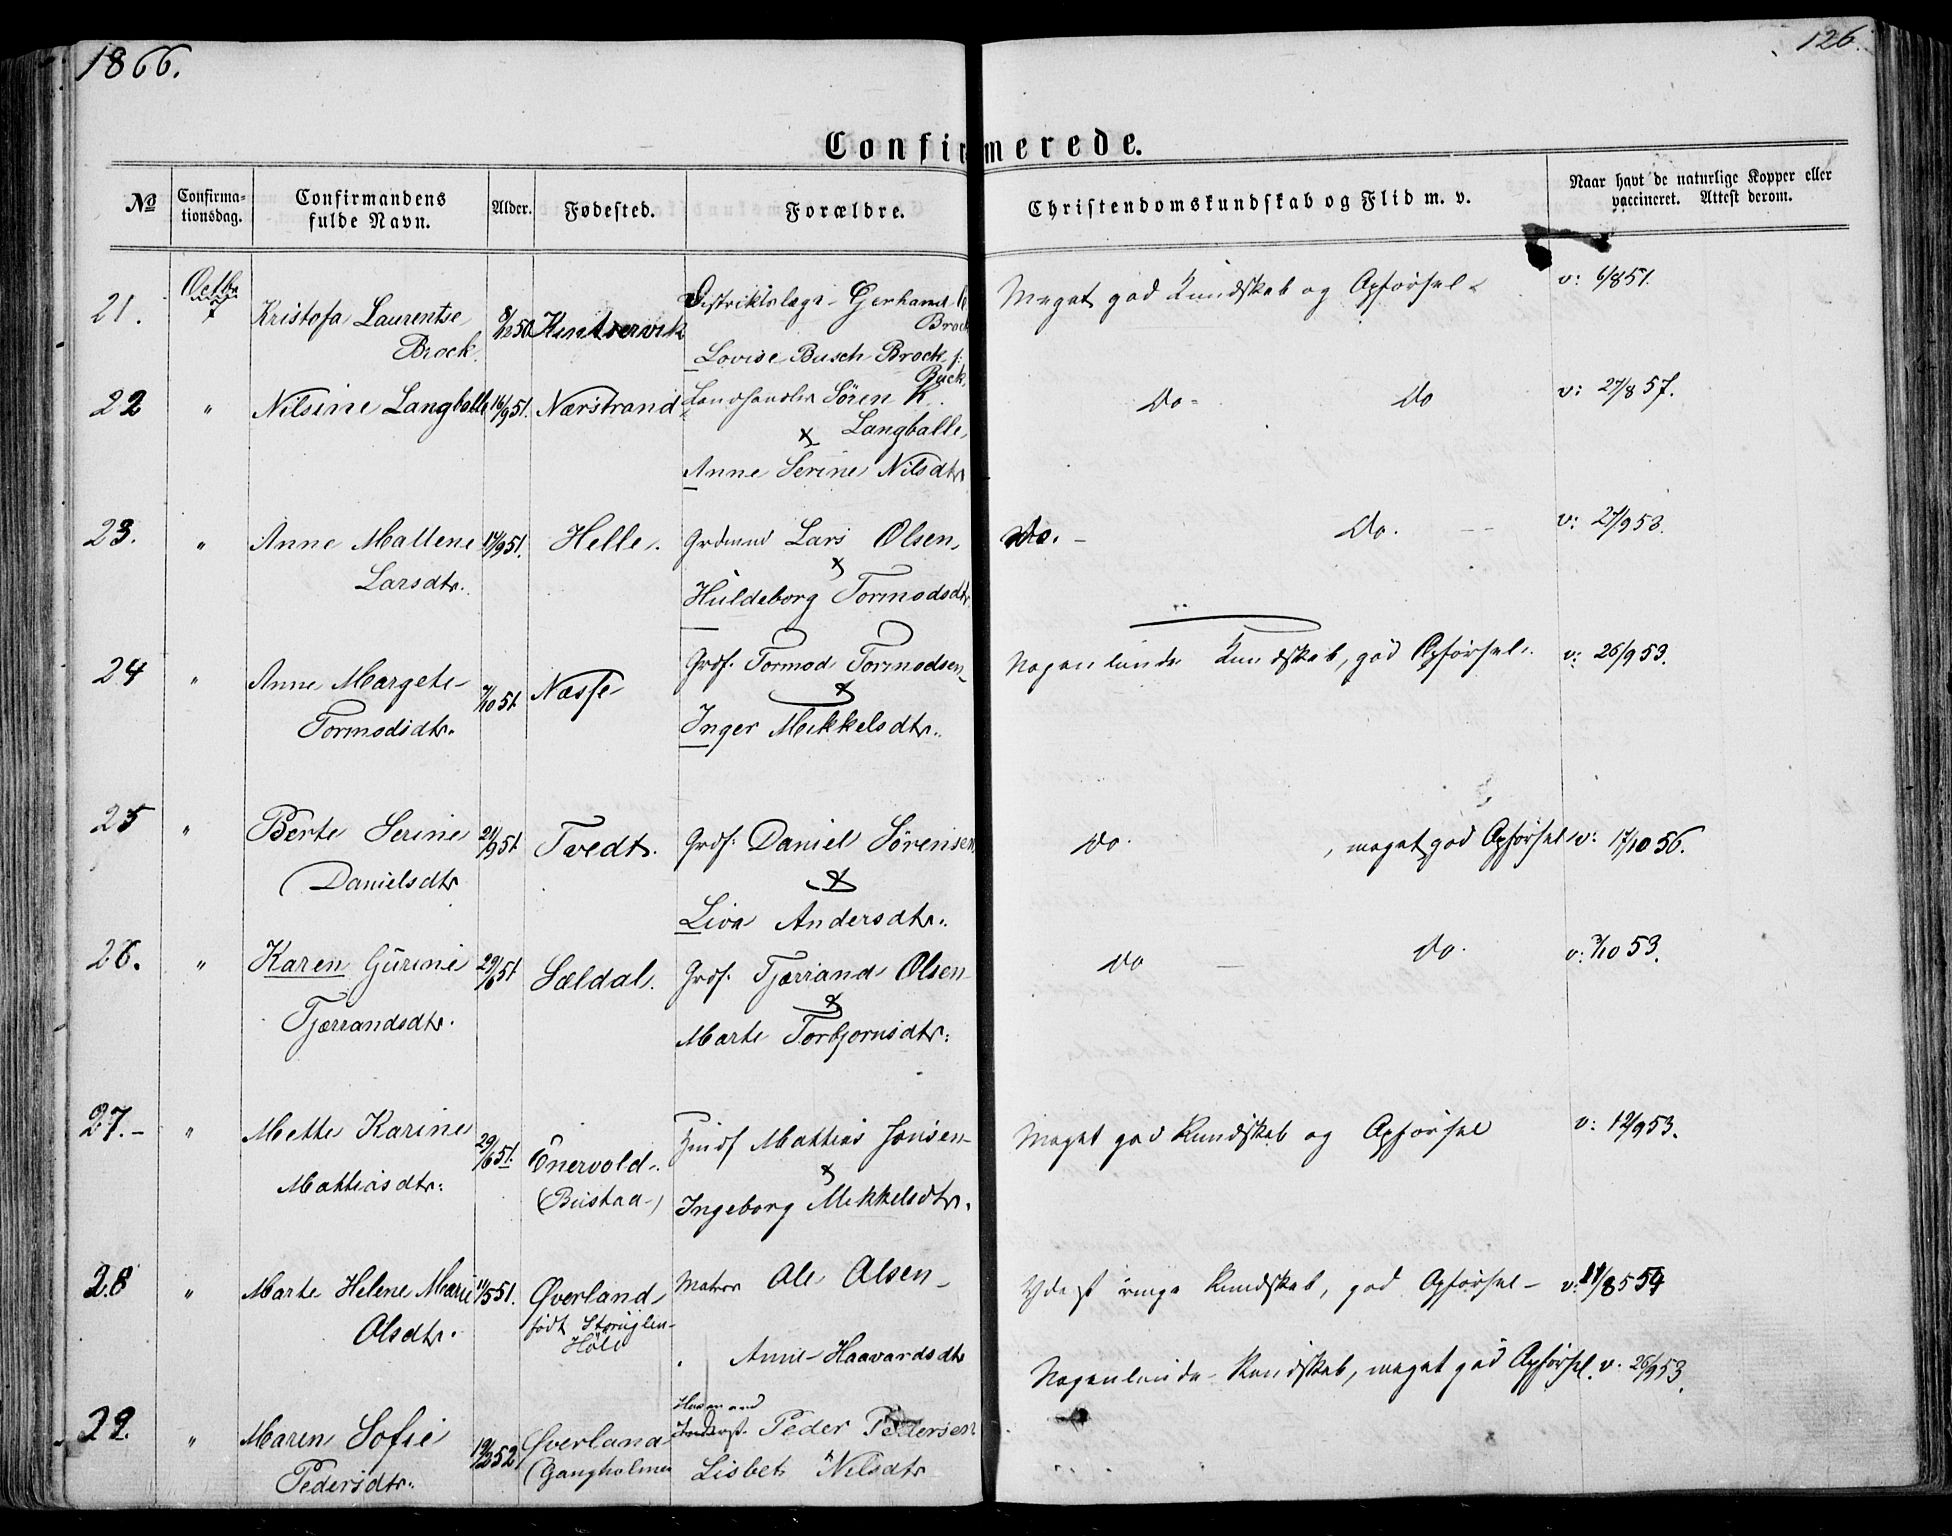 1866.
126.
Confirmerede.
No
Confirma-
tionsdag.
Confirmandens
fulde Navn.
Alder.
Fødested.
Forældre.
Christendomskundskab og Flid m. v.
Naar havt de naturlige Kopper eller
vaccineret. Attest derom.
21.
Octbr
7
Kristofa Laurentse
Brock.
8/12 50
Distriktslæge Gerhard
Brock
Lovise Busch Brock f:
Buck
Meget god Kundskab og Opførsel
v: 6/8 51.
22
"
Nilsine Langballe
16/9 51.
Nærstrand
Landhandler Sören K.
Langballe,
x
Anne Serine Nilsdtr
Do
Do
v: 27/8 57.
23.
"
Anne Mallene
Larsdtr.
17/9 51.
Helle.
Grdmnd Lars Olsen,
x
Huldeborg Tormodsdtr.
Do.
Do.
v: 27/9 53.
24
"
Anne Margete
Tormodsdtr.
7/10 51.
Næsse
Grdf. Tormod Tormodsen
x
Inger Mikkelsdtr.
Nogenlunde Kundskab, god Opførsel.
v: 26/9 53.
25
"
Berte Serine
Danielsdtr
21/9 51
Tvedt.
Grdf. Daniel Sörensen
x
Liva Andersdtr.
Do.
, meget god Opførsel
v: 17/10 56.
26.
"
Karen Gurine
Tjærrandsdtr.
29/6 51
Sældal.
Grdf. Tjærrand Olsen
x
Marte Torbjornsdtr:
Do
Do.
v: 3/10 53.
27.
"
Mette Karine
Mattiasdtr:
29/6 51.
Enervold
(Bustad)
Mattias Jonsen
x
Ingeborg Mikkelsdtr.
Meget god Kundskab og Opførsel
v: 12/9 53.
28
"
Marte Helene Marie
Olsdtr.
11/5 51.
Øverland
født
Höle
Matros Ole Olsen
Anne Haavardsdtr
Yderst ringe Kundskab, god Opførsel
29.
"
Maren Sofie
Pedersdtr.
19/2 52
Øverland
(Gangholmen
Husmand
Inderst. Peder Pedersen
Lisbet Nilsdtr
Nogenlunde Kundskab, meget god Opførsel.
v. 26/9 53.